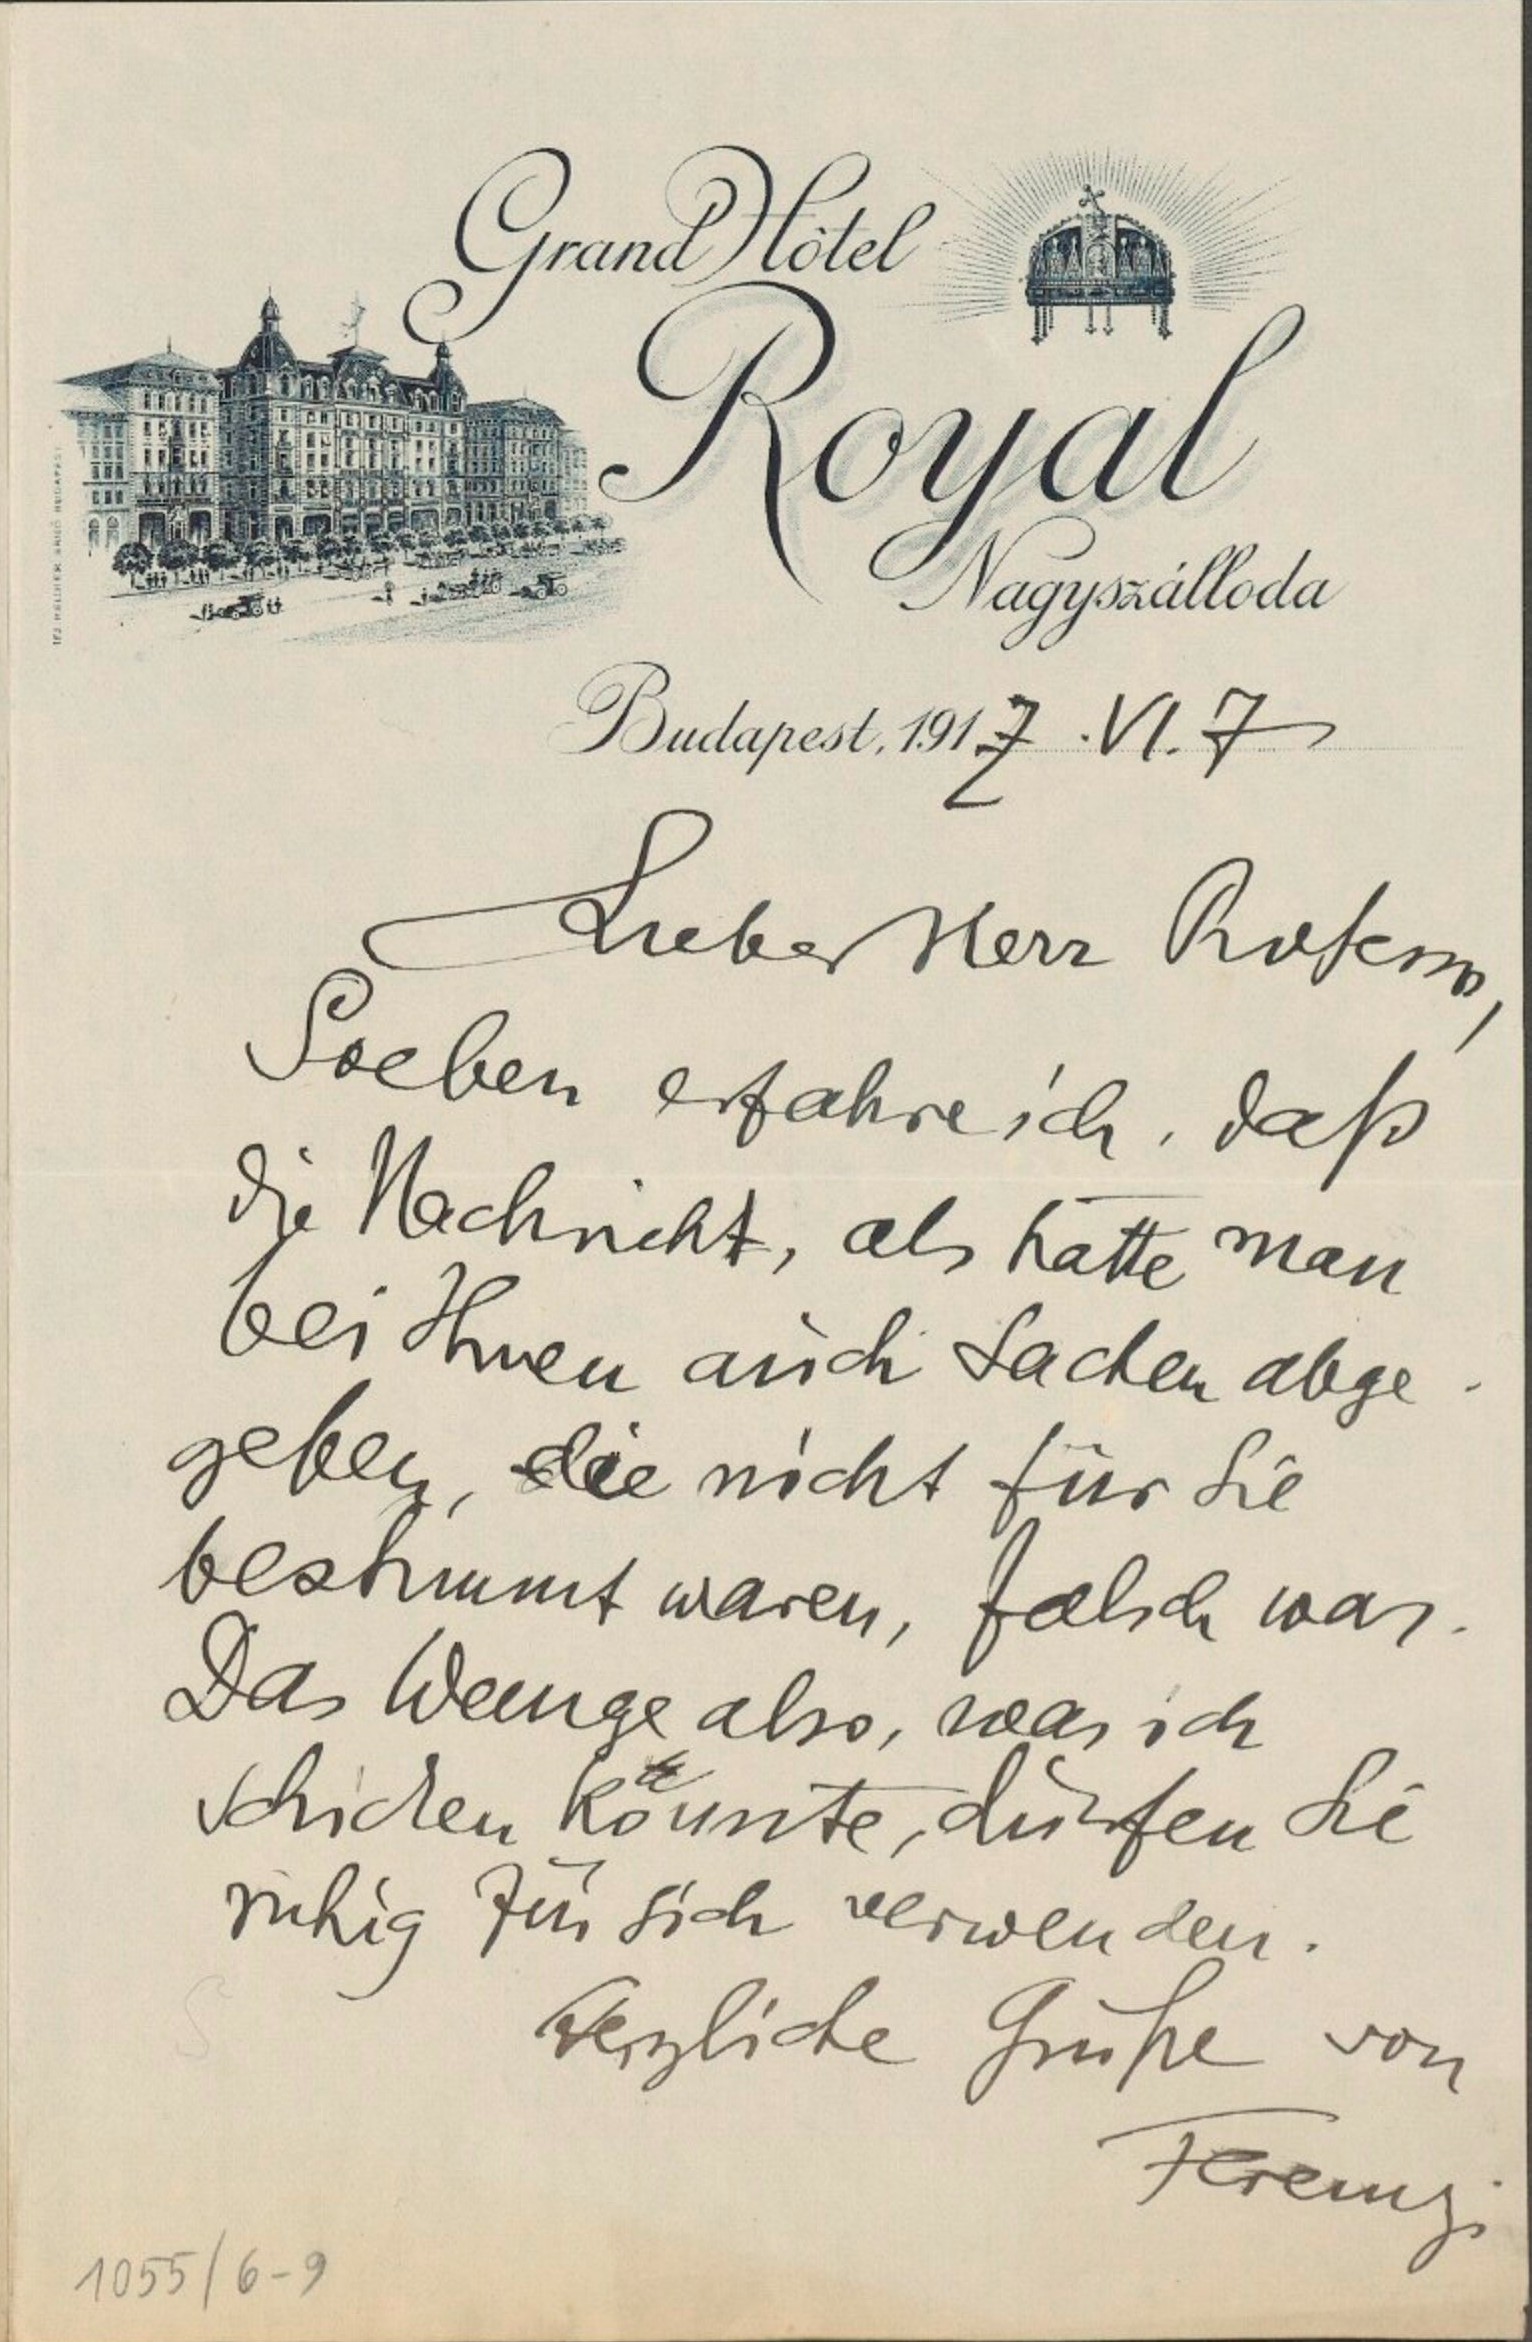 Grand Hôtel
Royal
Nagyszálloda
Budapest, 1917 . VI. 7
Lieber Herr
Soeben erfahre ich, daß
die Nachricht, als hätte man
bei Ihnen auch Sachen abge-
geben, die nicht für Sie
bestimmt waren, falsch war.
Das Wenige also, was ich
schicken könnte, dürfen Sie
ruhig für sich verwenden.
Herzliche Grüße von
Ferenczi
1055/6-9